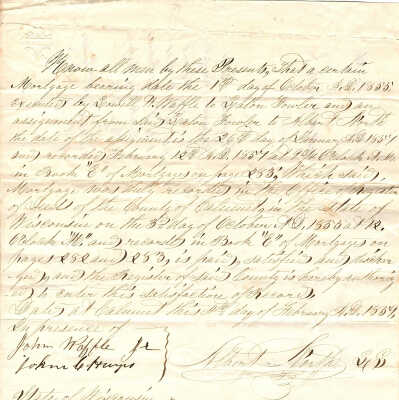 Know all men by these Presents, That a certain
Mortgage bearing date the 1st day of October A.D. 1855
executed by Lowell P. Waffle to Eaton Fowler and an
assignment from said Eaton Fowler to Albert
the date of the assignment is the 26th day of January A.D. 1857
and recorded February 12th A.D. 1857 at O'clock
in Book "C" of Mortgages on page 253; Which said
Mortgage was duly recorded in the Office
of Deeds of the County of Calumet, in the State of
Wisconsin on the 3d day of October A.D. 1855 at 12
O'clock M. and recorded in Book "C" of Mortgages on
pages 252 and 253, is paid, satisfied and
and the Register of said County is hereby
to enter this satisfaction of Record.
Dated at Calumet this day of February A.D. 1857
In presence of
John Waffle Jr
John
Albert
State of Wisconsin